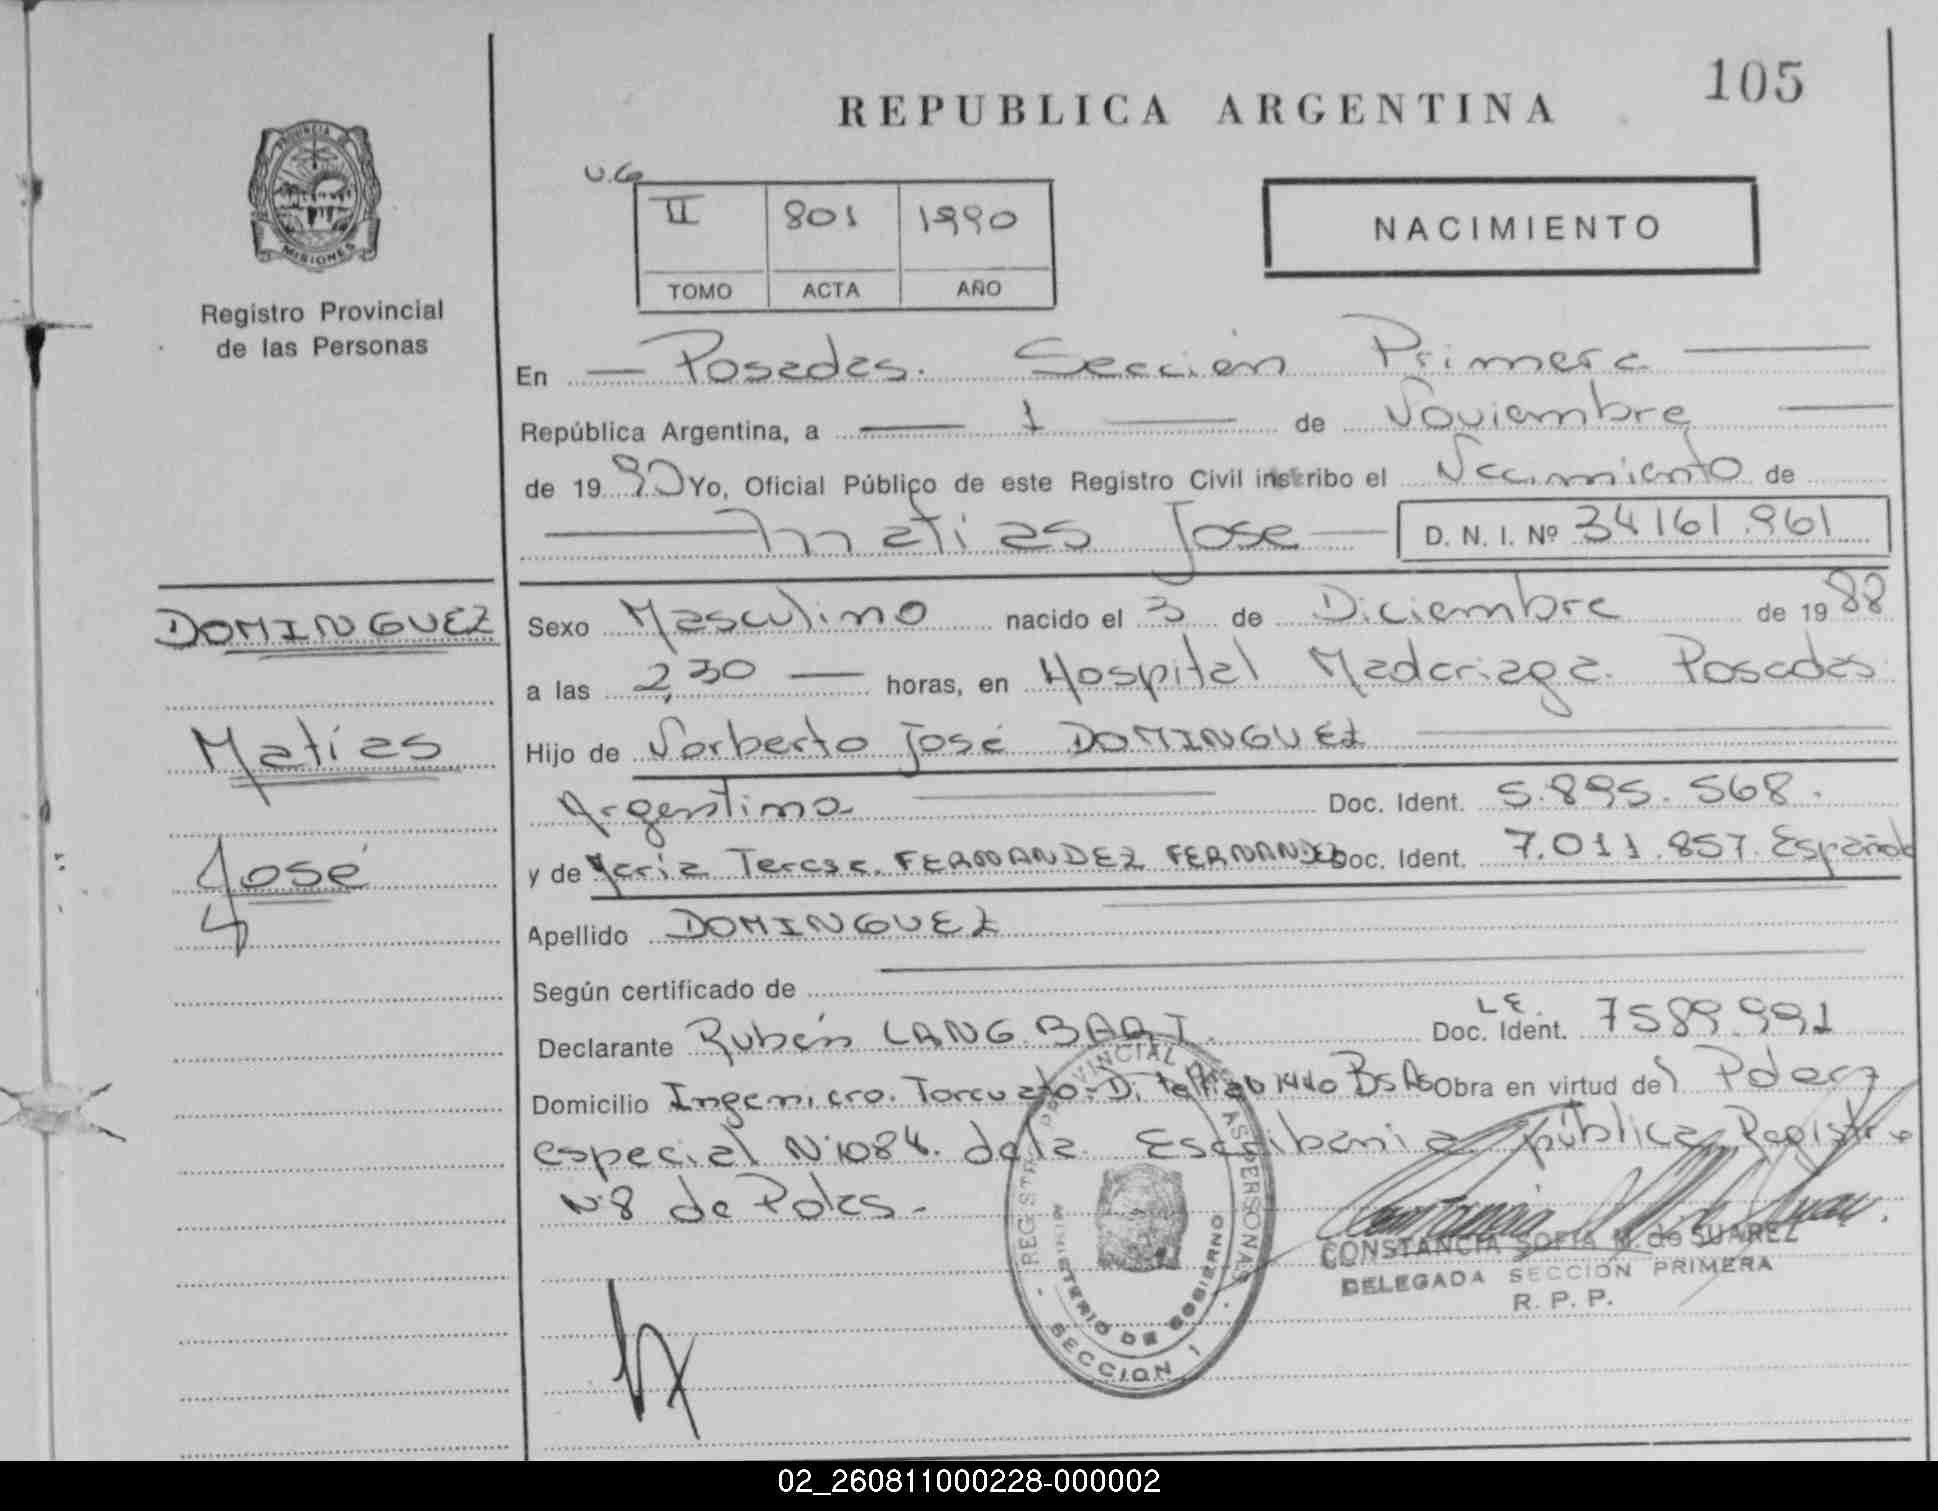 105
REPUBLICA ARGENTINA
PROVINCIA DE
MISIONES
Registro Provincial
de las Personas
U.G
II 801 1990
TOMO ACTA AÑO
NACIMIENTO
En Posadas. Sección Primera
República Argentina, a 1 de Noviembre
de 1990 Yo, Oficial Público de este Registro Civil inscribo el Nacimiento de
Matias Jose D. N. I. Nº 34161.961
DOMINGUEZ
Matías
José
Sexo Masculino nacido el 3 de Diciembre de 1988
a las 2,30 horas, en Hospital Madariaga. Posadas
Hijo de Norberto José DOMINGUEZ
Argentino Doc. Ident. 5.895.568.
y de María Teresa. FERNANDEZ FERNANDEZ Doc. Ident. 7.011.857. Española
Apellido DOMINGUEZ
Según certificado de
Declarante Rubén LANG BART. Doc. Ident. L.E. 7589.991
Domicilio Ingeniero. Torcuato. Di Tella 1440 Bs As Obra en virtud del Poder
especial Nº1084. de la Escribania pública Registro
Nº8 de Pdas.
REGISTRO PROVINCIAL DE LAS PERSONAS
MINISTERIO DE GOBIERNO
SECCION 1
CONSTANCIA SOFIA M. de SUAREZ
DELEGADA SECCION PRIMERA
R. P. P.
02_260811000228-000002